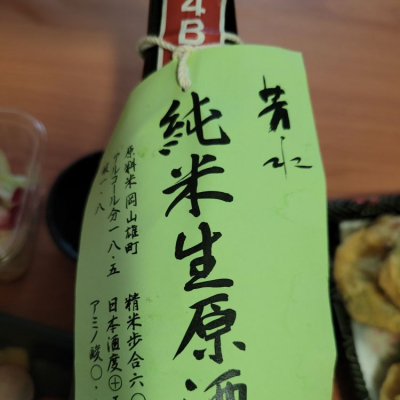 4B
芳水
純米生原酒
原料米岡山雄町
アルコール分一八・五
酸一・八
精米歩合六〇
日本酒度⊕
アミノ酸〇・